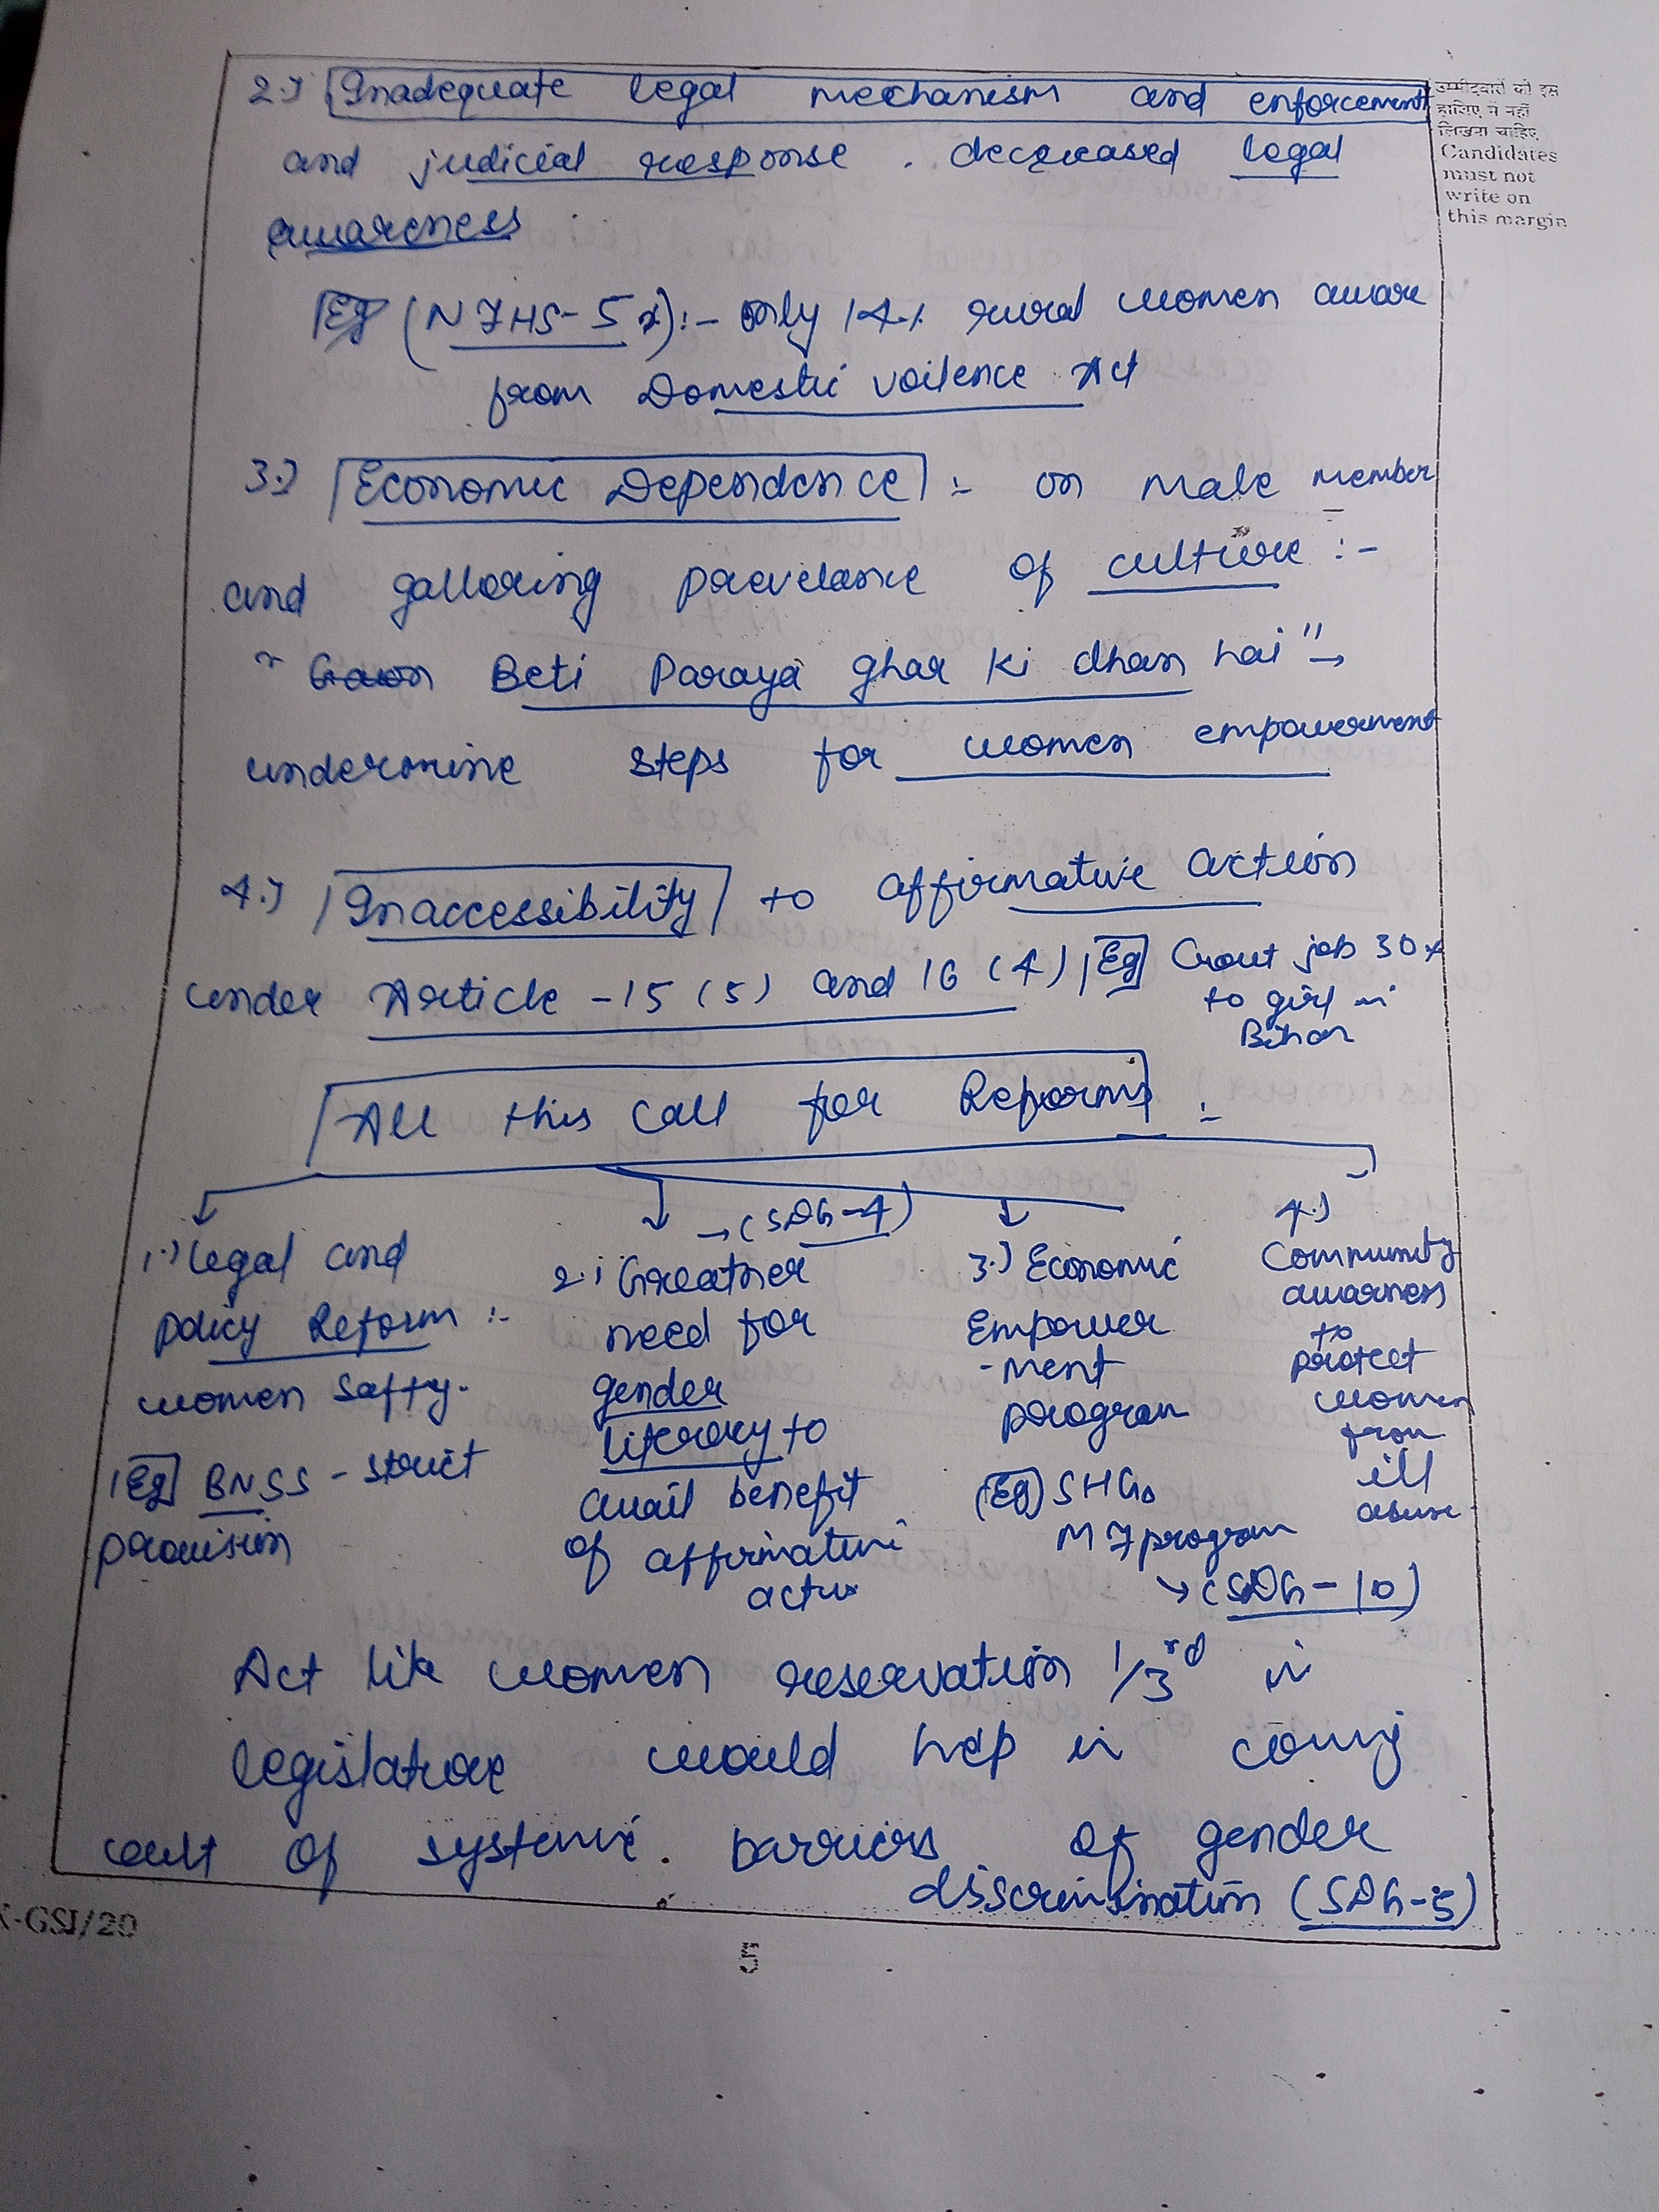 2.) Inadequate legal mechanism and enforcement
and judicial response. decreased legal
awareness
Eg (NFHS-5): - only 14% rural women aware
from Domestic voilence Act
3.) Economic Dependence :- on male member
and galloring prevelance of culture :-
" Beti Paraya ghar ki dhan hai" →
undermine steps for women empowerment
4.) Inaccessibility to affirmative action
under Article - 15 (5) and 16 (4) Eg Govt job 30%
to girl in
Bihar
All this call for Reforms :-
1.) legal and
policy Reform :-
women safty.
Eg BNSS - strict
provision
→ (SDG-4)
2.) Greatner
need for
gender
literacy to
avail benefit
of affirmative
action
3.) Economic
Empower
-ment
program
(Eg) SHGs
MF program
→ (SDG-10)
4.)
Community
awarness
to
protect
women
from
ill
abuse
Act like women reservation 1/3rd in
legislature would help in coming
out of systemic barriers of gender
discrimination (SDG-5)
उम्मीदवारों को इस
हाशिए में नहीं
लिखना चाहिए
Candidates
must not
write on
this margin
-GSI/20
5